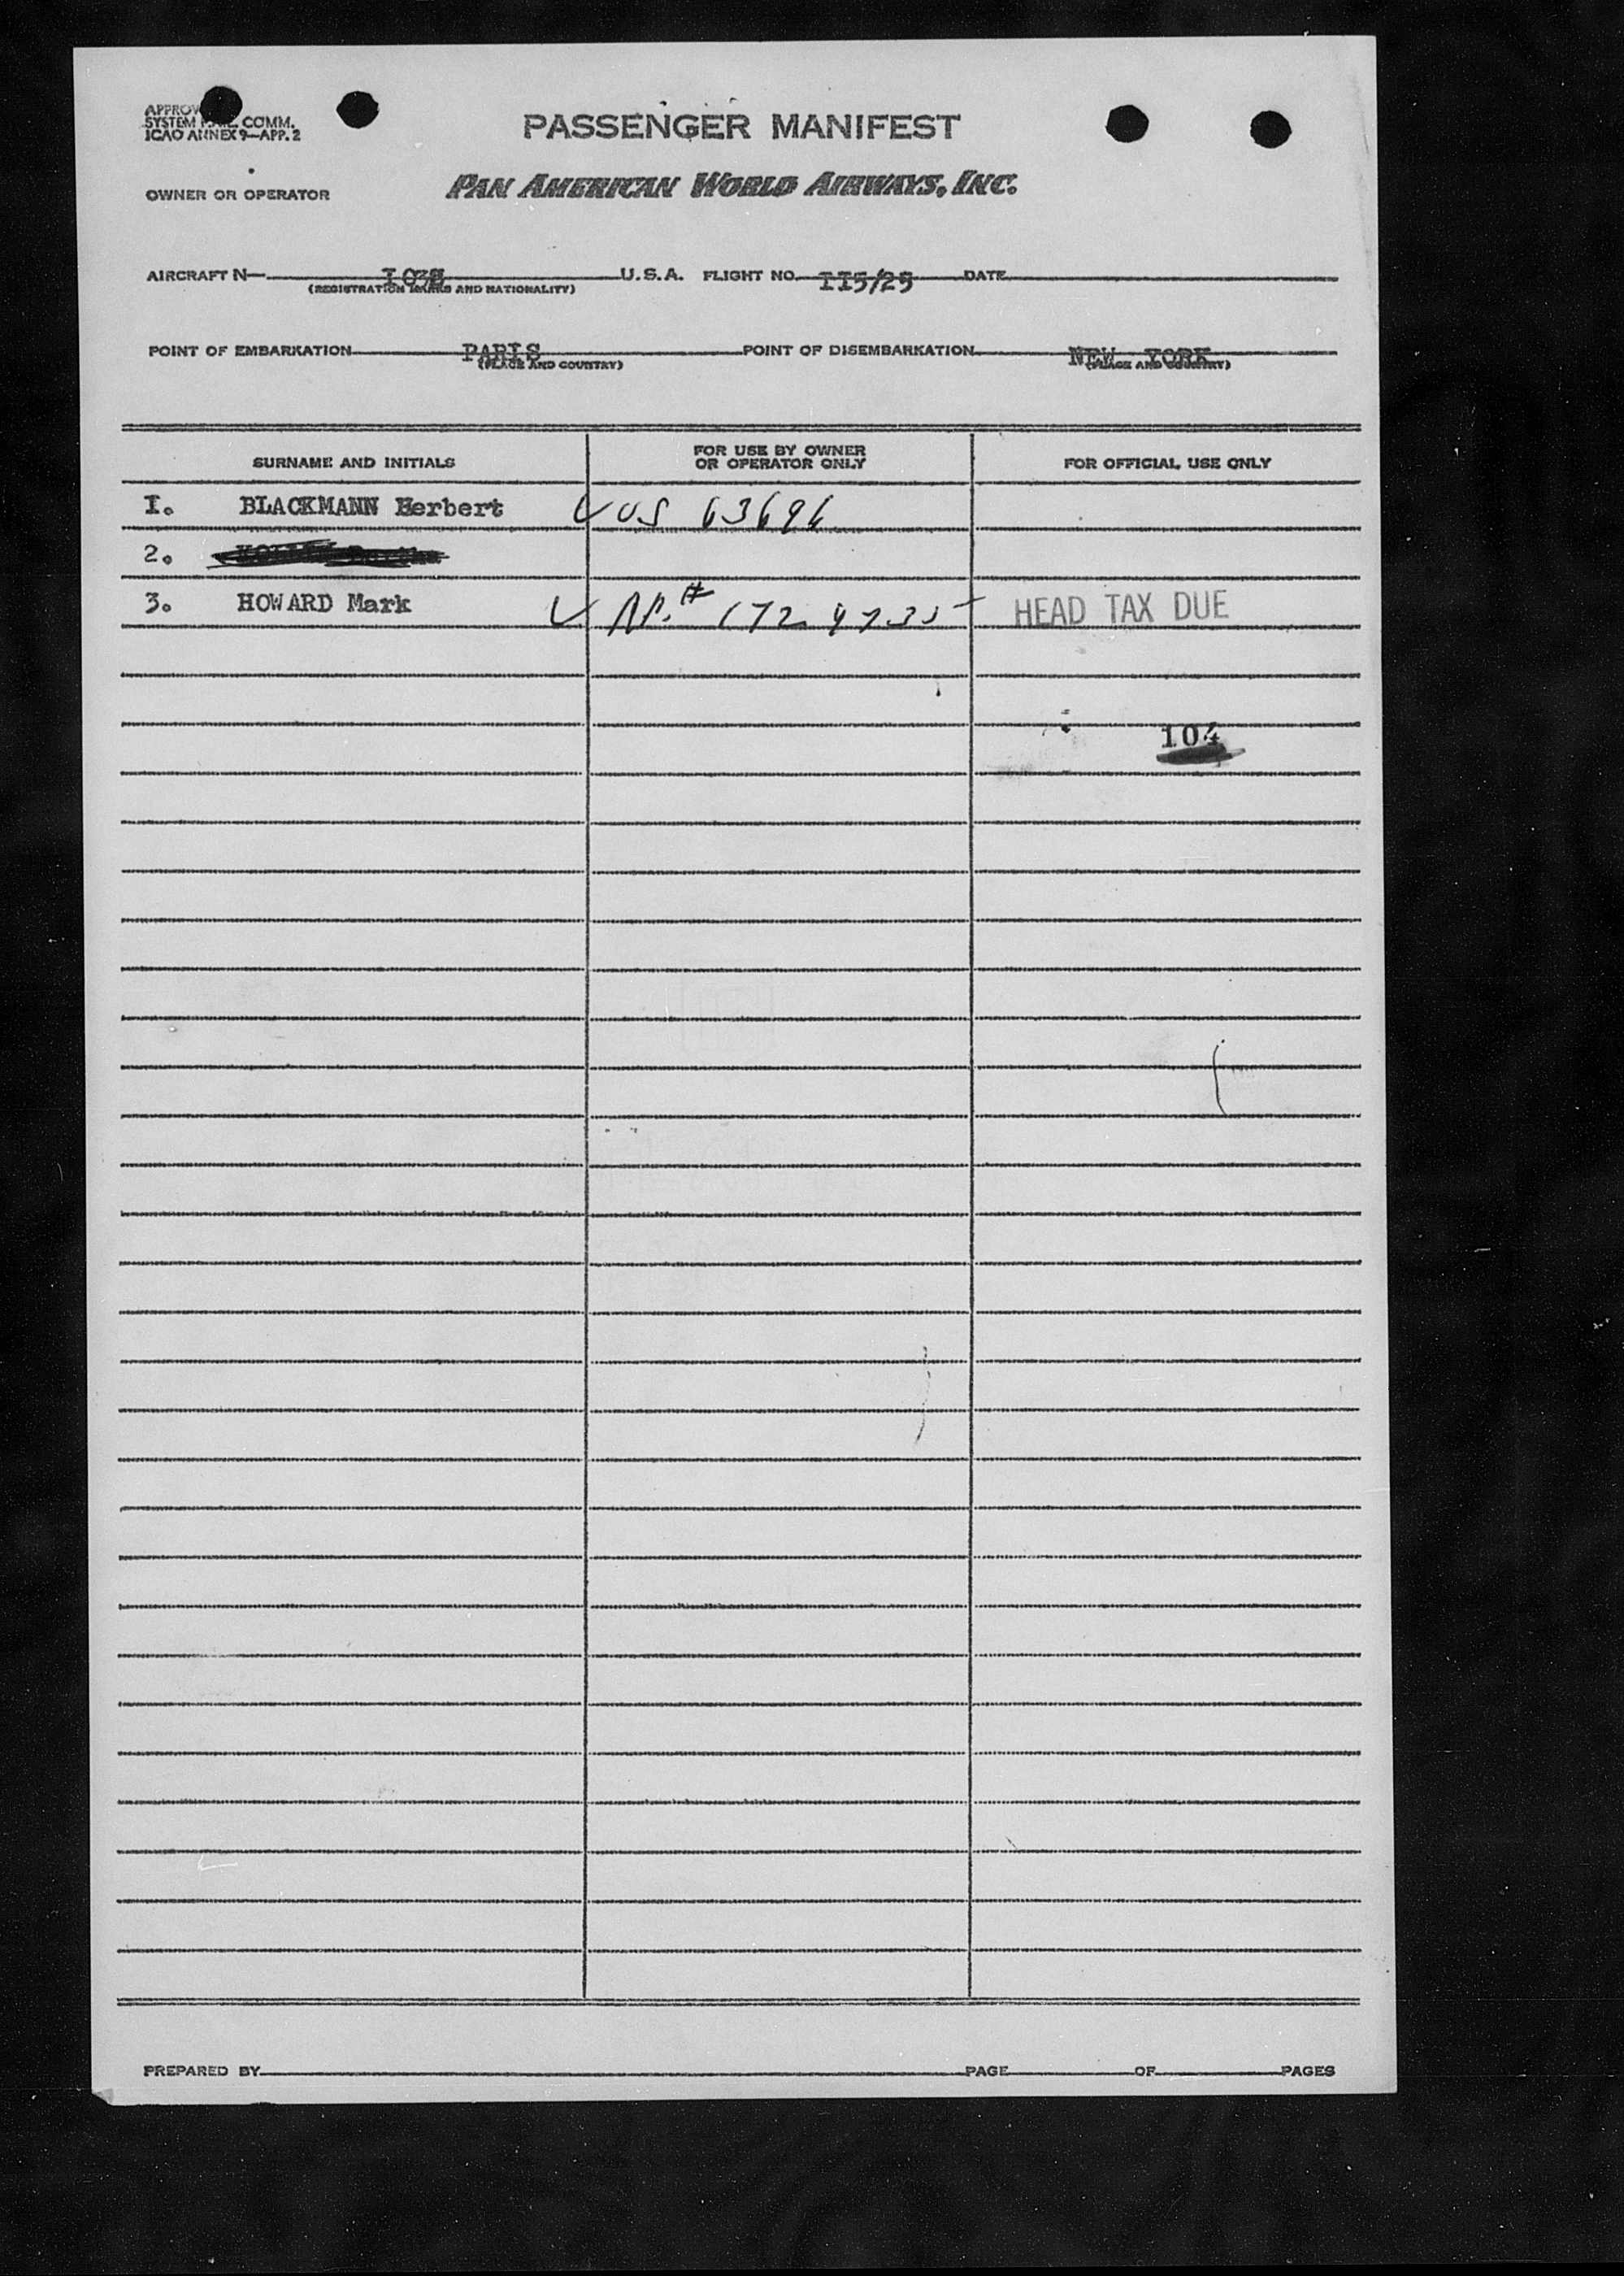 SYSTEM COMM.
ICAO ANNEX 9—APP. 2
PASSENGER MANIFEST
OWNER OR OPERATOR PAN AMERICAN WORLD AIRWAYS, INC.
AIRCRAFT N— U.S.A. FLIGHT NO. II5/25 DATE
(REGISTRATION MARKS AND NATIONALITY)
POINT OF EMBARKATION PARIS POINT OF DISEMBARKATION NEW YORK
(PLACE AND COUNTRY) (PLACE AND COUNTRY)
SURNAME AND INITIALS FOR USE BY OWNER OR OPERATOR ONLY FOR OFFICIAL USE ONLY
I. BLACKMANN Herbert US 63696
2.
3. HOWARD Mark HEAD TAX DUE
104
PREPARED BY PAGE OF PAGES